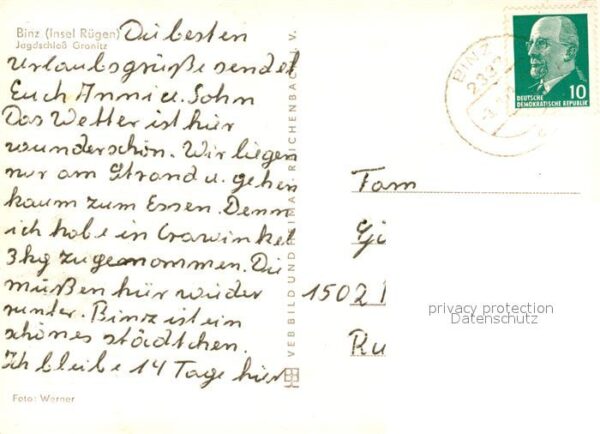 Binz (Insel Rügen)
Jagdschloß Granitz
Die besten
Urlaubsgrüße sendet
Euch Anni u. Sohn
Das Wetter ist hier
wunderschön. Wir liegen
nur am Strand u. gehen
kaum zum Essen. Denn
ich habe in Crawinkel
3 kg zugenommen. Die
müßen hier wieder
runter. Binz ist ein
schönes städtchen.
Ich bleibe 14 Tage hier
Foto: Werner
VEB BILD UND HEIMAT REICHENBACH I. V.
BINZ
DEUTSCHE
DEMOKRATISCHE REPUBLIK
10
Fam
1502
privacy protection
Datenschutz